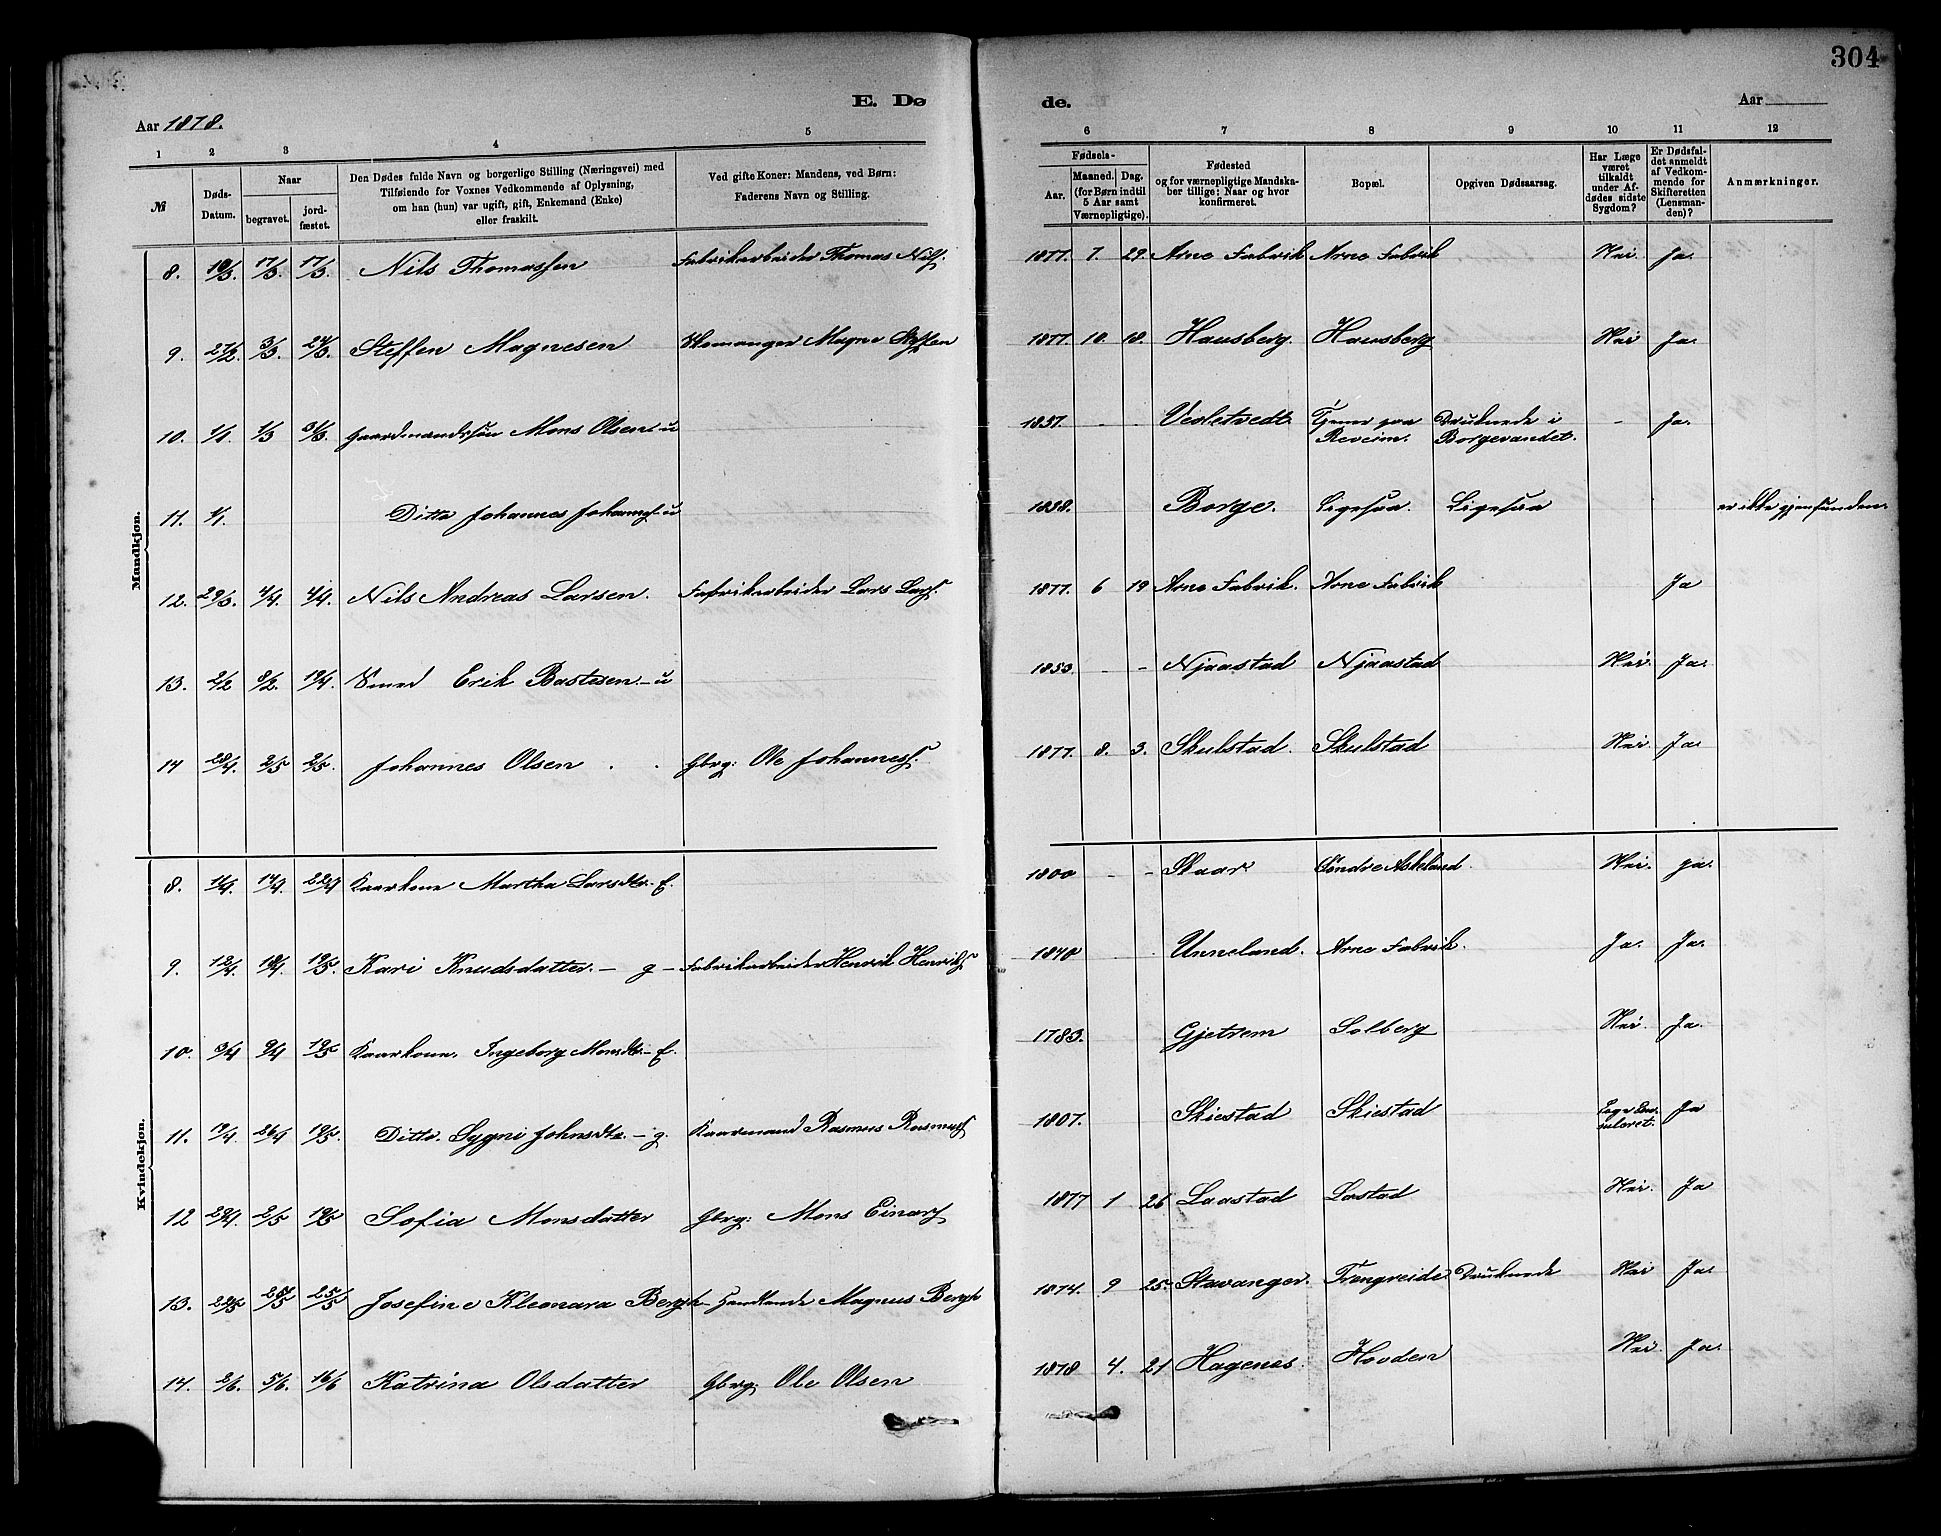 304
E. Dø
de.
Aar 1878.
Aar
1 2 3 4 5 6 7 8 9 10 11 12
№
Døds-Datum.
Naar
begravet.
jord-fæstet.
Den Dødes fulde Navn og borgerlige Stilling (Næringsvei) med
Tilføiende for Voxnes Vedkommende af Oplysning,
om han (hun) var ugift, gift, Enkemand (Enke)
eller fraskilt.
Ved gifte Koner: Mandens, ved Børn:
Faderens Navn og Stilling.
Fødsels-
Aar.
Maaned. Dag.
(for Børn indtil
5 Aar samt
Værnepligtige).
Fødested
og for værnepligtige Mandska-
ber tillige: Naar og hvor
konfirmeret.
Bopæl.
Opgiven Dødsaarsag.
Har Læge
været
tilkaldt
under Af-
dødes sidste
Sygdom?
Er Dødsfal-
det anmeldt
af Vedkom-
mende for
Skifteretten
(Lensman-
den)?
Anmærkninger.
Mandkjøn.
8. 17/3. 17/3. Nils Thomassen Fabrikarbeider Thomas Nils. 1877. 7. 29. Arne Fabrik Arne Fabrik Nei. Ja.
9. 27/2. 3/3. Steffen Magnesen Magne Steffen 1877. 10. 18. Hausberg. Hausberg Nei Ja.
10. 1/1. 1/3 Gaardmandssøn Mons Olsen - u 1837. - - Tjener paa Druknede i - Ja.
Borgevandet.
11. 1/1. Ditto Johannes Johannes - u 1838. Borge. Ligesaa. Ligesaa er ikke gjenfunden.
12. 29/3. 4/4. 4/4. Nils Andreas Larsen. Fabrikarbeider Lars Lars. 1877. 6 19 Arne Fabrik. Arne Fabrik Ja
13. 2/2 8/2. Smed Erik Bastesen - u 1853. - - Njaastad Njaastad Nei. Ja.
14 28/4. 2/5 2/5. Johannes Olsen Gbrg: Ole Johannes. 1877. 8. 3. Skulstad. Skulstad Nei. Ja.
Kvindekjøn.
8. 14/4. 22/4 Kaarkone Martha Larsdtr. - E. 1800 - - Skaar Søndre Askeland. Nei. ja.
9. 12/4. 18/4 19/5. Kari Knudsdatter. - g - Fabrikarbeider Henrik Henriks 1840 Unneland. Arne Fabrik. Ja. Ja.
10. 3/4 9/4 19/5 Kaarkone. Ingeborg Monsdtr - E. 1783. Gjetrem Solberg Nei. Ja.
11. 26/4 19/5. Ditto. Sygni Johnsdtr. - g. Kaarmand Rasmus Rasmus 1807. Skiestad Skiestad Ja
12 29/4. 2/5 19/5 Sofia Monsdatter Gbrg: Mons Einars 1877 1 26 Laastad Lastad Nei. Ja
13. 22/5 25/5 25/5 Josefine Kleonara Bergh - Handlende Magnus Bergh 1874. 9 25. Stavanger. Trengreide Druknede Nei Ja.
14. 2/6. 5/6. 16/6 Katrina Olsdatter Gbrg: Ole Olsen 1878 4. 21 Hagenes. Hovden Nei. Ja.